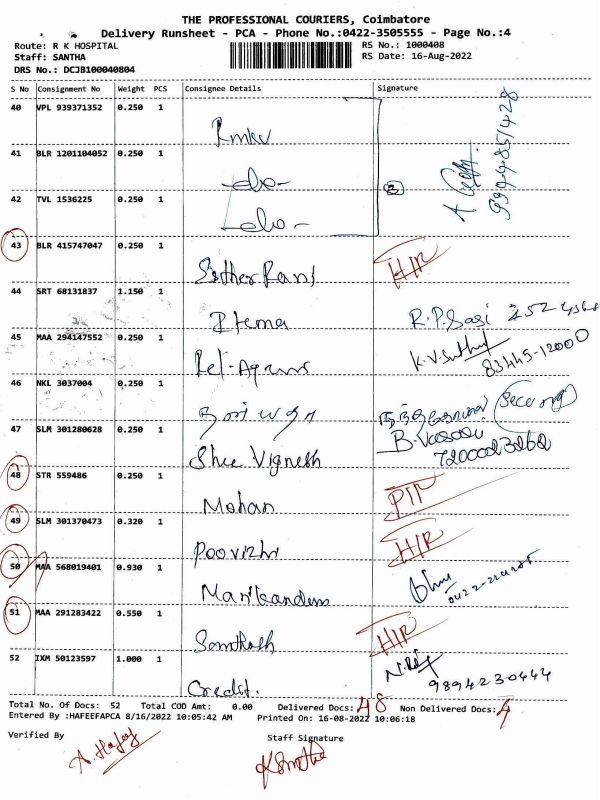 THE PROFESSIONAL COURIERS, Coimbatore
Delivery Runsheet - PCA - Phone No.:0422-3505555 - Page No.:4
Route: R K HOSPITAL RS No.: 1000408
Staff: SANTHA RS Date: 16-Aug-2022
DRS No.: DCJB100040804
S No Consignment No Weight PCS Consignee Details Signature
40 VPL 939371352 0.250 1
Rmkv
41 BLR 1201104052 0.250 1
-do-
3
42 TVL 1536225 0.250 1
-do-
43 BLR 415747047 0.250 1
Esther Rani H/R
44 SRT 68131837 1.150 1
R.P.Sasi
45 MAA 294147552 0.250 1
83445-12000
46 NKL 3037004 0.250 1
47 SLM 301280628 0.250 1
Shree Vignesh
48 STR 559486 0.250 1
Mohan
49 SLM 301370473 0.320 1
Poovizhi H/R
50 MAA 568019401 0.930 1
51 MAA 291283422 0.550 1
Santhosh H/R
52 IXM 50123597 1.000 1
Credit. 9894230444
Total No. Of Docs: 52 Total COD Amt: 0.00 Delivered Docs: 48 Non Delivered Docs: 4
Entered By :HAFEEFAPCA 8/16/2022 10:05:42 AM Printed On: 16-08-2022 10:06:18
Verified By Staff Signature